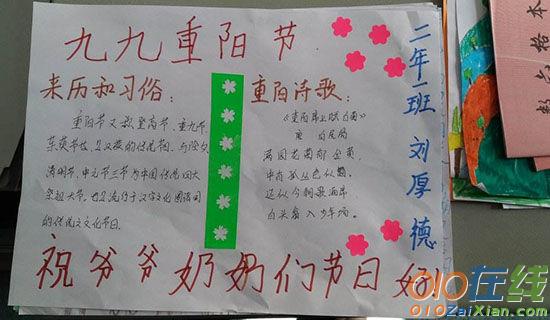 九九重阳节
来历和习俗:
重阳节又叫登高节,重九节,
茱萸节,
清明节、中元节三节为中国传统四大
祭祖大节。也是流行于汉字文化圈诸国
的传统文化节日。
重阳诗歌:
唐 白居易
满园花菊郁金黄,
中有孤丛色似霜。
还似今朝歌酒席,
白头翁入少年场。
二年一班 刘厚德
祝爷爷奶奶们节日好
格本
010在线
010ZaiXian.com